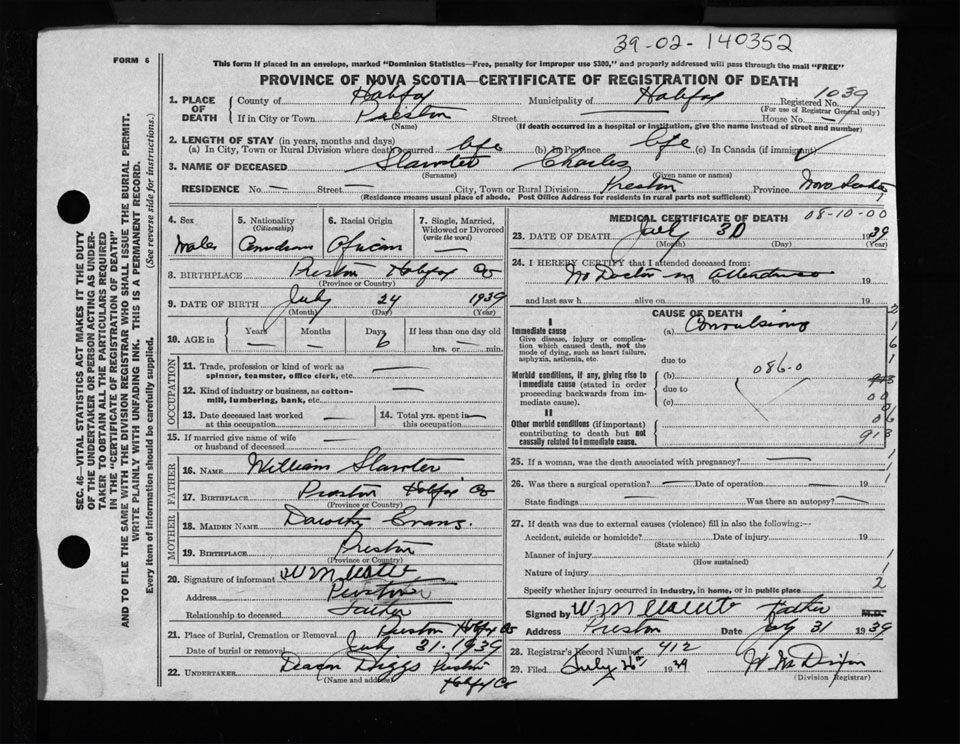 39-02-140352
FORM 6
This form if placed in an envelope, marked "Dominion Statistics—Free, penalty for improper use $300," and properly addressed will pass through the mail "FREE"
PROVINCE OF NOVA SCOTIA—CERTIFICATE OF REGISTRATION OF DEATH
1. PLACE OF DEATH
County of Halifax Municipality of Halifax Registered No. 1039
(For use of Registrar General only)
If in City or Town Preston Street House No.
(Name) (If death occurred in a hospital or institution, give the name instead of street and number)
2. LENGTH OF STAY (in years, months and days)
(a) In City, Town or Rural Division where death occurred life (b) In Province life (c) In Canada (if immigrant)
3. NAME OF DECEASED Slawter Charles
(Surname) (Given name or names)
RESIDENCE No. — Street — City, Town or Rural Division Preston Province Nova Scotia
(Residence means usual place of abode. Post Office Address for residents in rural parts not sufficient)
4. Sex
Male
5. Nationality
(Citizenship)
Canadian
6. Racial Origin
African
7. Single, Married, Widowed or Divorced
(write the word)
—
8. BIRTHPLACE Preston Halifax Co
(Province or Country)
9. DATE OF BIRTH July 24 1939
(Month) (Day) (Year)
10. AGE in
Years Months Days If less than one day old
— — 6 hrs. or — min.
OCCUPATION
11. Trade, profession or kind of work as
spinner, teamster, office clerk, etc. —
12. Kind of industry or business, as cotton-
mill, lumbering, bank, etc. —
13. Date deceased last worked
at this occupation —
14. Total yrs. spent in
this occupation —
15. If married give name of wife
or husband of deceased —
FATHER
16. NAME William Slawter
17. BIRTHPLACE Preston Halifax Co
(Province or Country)
MOTHER
18. MAIDEN NAME Dorothy Evans.
19. BIRTHPLACE Preston
(Province or Country)
20. Signature of informant Wm
Address Preston
Relationship to deceased Father
21. Place of Burial, Cremation or Removal Preston Halifax Co
Date of burial or removal July 31. 1939
22. UNDERTAKER Deacon Diggs Preston
(Name and address)
Halifax Co
MEDICAL CERTIFICATE OF DEATH 08-10-00
23. DATE OF DEATH July 30 1939
(Month) (Day) (Year)
24. I HEREBY CERTIFY that I attended deceased from:
No Doctor in attendance
19 to 19
and last saw h alive on 19
CAUSE OF DEATH
I
Immediate cause (a) Convulsions
Give disease, injury or complica-
tion which caused death, not the
mode of dying, such as heart failure,
asphyxia, asthenia, etc.
due to
086-0
Morbid conditions, if any, giving rise to
immediate cause (stated in order
proceeding backwards from im-
mediate cause).
(b)
due to
(c)
II
Other morbid conditions (if important)
contributing to death but not
causally related to immediate cause.
2
1
6
1
00
01
06
913
25. If a woman, was the death associated with pregnancy? —
26. Was there a surgical operation? — Date of operation — 19
State findings — Was there an autopsy? —
27. If death was due to external causes (violence) fill in also the following:—
Accident, suicide or homicide? Date of injury 19
(State which)
Manner of injury
(How sustained)
Nature of injury
Specify whether injury occurred in industry, in home, or in public place
1
2
Signed by Wm Father M.D.
Address Preston Date July 31 1939
28. Registrar's Record Number 412
29. Filed July 26th 1939
(Division Registrar)
SEC. 46—VITAL STATISTICS ACT MAKES IT THE DUTY
OF THE UNDERTAKER OR PERSON ACTING AS UNDER-
TAKER TO OBTAIN ALL THE PARTICULARS REQUIRED
IN THE "CERTIFICATE OF REGISTRATION OF DEATH"
AND TO FILE THE SAME WITH THE DIVISION REGISTRAR WHO SHALL ISSUE THE BURIAL PERMIT.
WRITE PLAINLY WITH UNFADING INK. THIS IS A PERMANENT RECORD.
Every item of information should be carefully supplied. (See reverse side for instructions.)